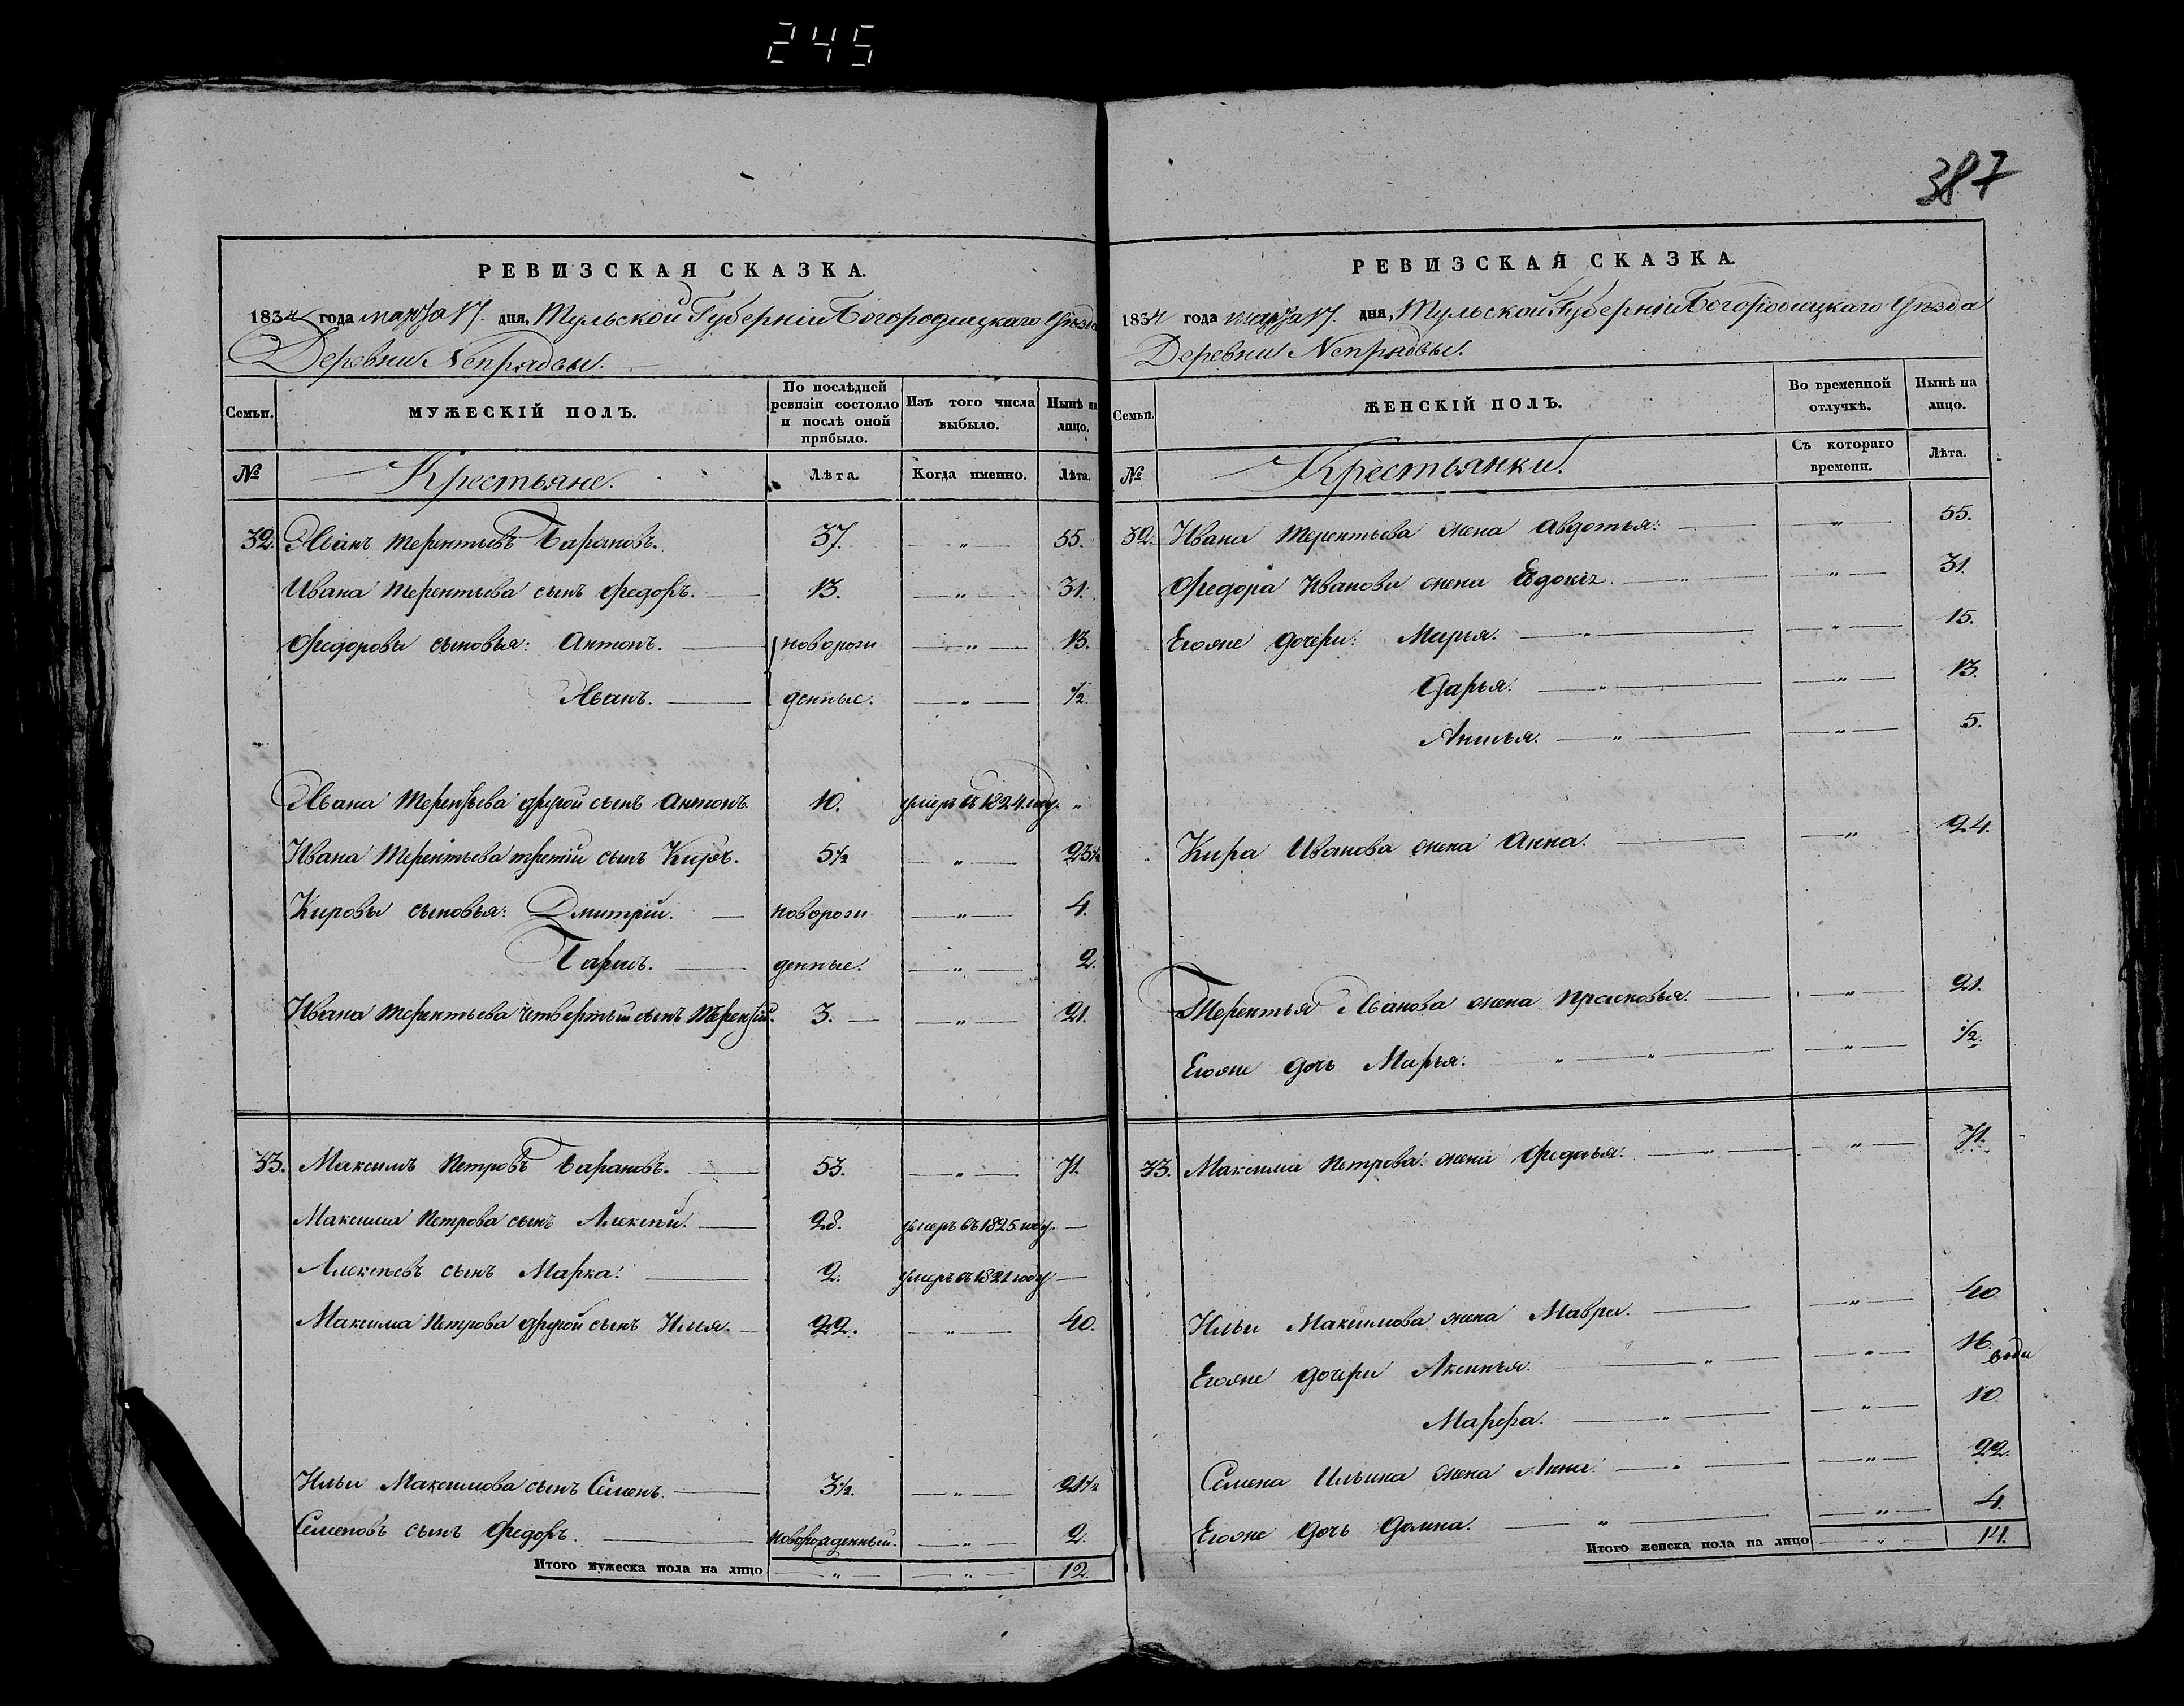 245
387
РЕВИЗСКАЯ СКАЗКА.
1834 года марта 17. дня, Тульской Губерніи Богородицкаго Уѣзда
Деревни Непрядвы.
Семьи.
МУЖЕСКІЙ ПОЛЪ.
По послѣдней ревизіи состояло и послѣ оной прибыло.
Изъ того числа выбыло.
Нынѣ на лицо.
№
Крестьяне.
Лѣта.
Когда именно.
Лѣта.
32. Иванъ Терентьевъ Барановъ. 37. — „ — 55.
Ивана Терентьева сынъ Федоръ. — 13. — „ — 31.
Федоровы сыновья: Антонъ. — новорож — „ — 13.
Иванъ. — денные. — „ — ½.
Ивана Терентьева другой сынъ Антонъ 10. умеръ въ 1824. году. „
Ивана Терентьева третій сынъ Киръ. 5½ — „ — 23½
Кировы сыновья: Дмитрій. — новорож — „ — 4.
Парѳ. — денные. — „ — 2.
Ивана Терентьева четвертый сынъ Терентій. 3. — — „ — 21.
33. Максимъ Петровъ Барановъ. — 53. — „ — 71.
Максима Петрова сынъ Алексѣй. — 28. умеръ въ 1825 году. —
Алексѣевъ сынъ Марка. — 2. умеръ въ 1821 году —
Максима Петрова другой сынъ Илья. — 22. — „ — 40.
Ильи Максимова сынъ Семенъ. — 3½. — „ — 21½
Семеновъ сынъ Федоръ. — новорожденный. — „ — 2.
Итого мужеска пола на лицо — „ — — „ — 12.
РЕВИЗСКАЯ СКАЗКА.
1834 года марта 17. дня, Тульской Губерніи Богородицкаго Уѣзда
Деревни Непрядвы.
Семьи.
ЖЕНСКІЙ ПОЛЪ.
Во временной отлучкѣ.
Нынѣ на лицо.
№
Крестьянки.
Съ котораго времени.
Лѣта.
32. Ивана Терентьева жена Авдотья. — — „ — 55.
Федора Иванова жена Евдокія. — „ — — „ — 31.
Егоже дочери: Марья. — „ — — „ — 15.
Дарья. — „ — — „ — 13.
Анисья. — „ — — „ — 5.
Кира Иванова жена Анна. — — „ — 24.
Терентья Иванова жена Прасковья. — — „ — 21.
Егоже дочь Марья. „ — „ — — „ — ½.
33. Максима Петрова жена Федосья. — „ — — „ — 71.
Ильи Максимова жена Мавра. — — „ — 40
Егоже дочери Аксинья. — „ — — „ — 16.
Марфа. — „ — — „ — 10
Семена Ильина жена Анна. — „ — — „ — 22.
Егоже дочь Домна. — „ — — „ — 4.
Итого женска пола на лицо — „ — 14.